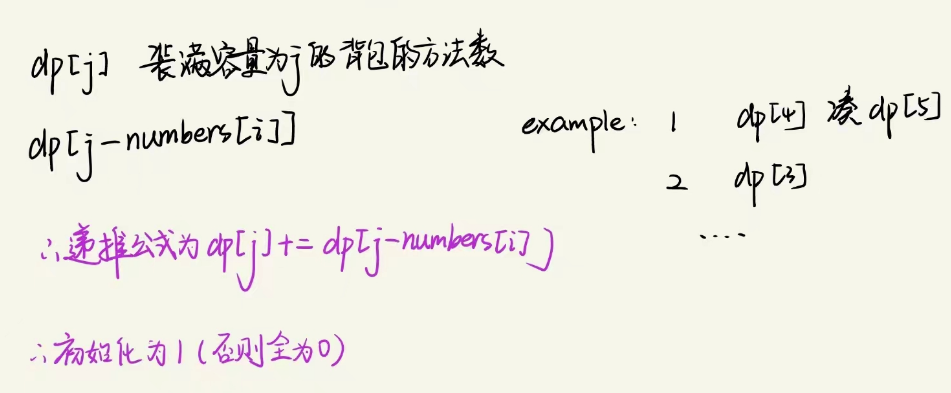 dp[j] 装满容量为j的背包的方法数
dp[j-numbers[i]]
example: 1 dp[4] 凑dp[5]
2 dp[3]
....
∴递推公式为dp[j]+=dp[j-numbers[i]]
∴初始化为1(否则全为0)